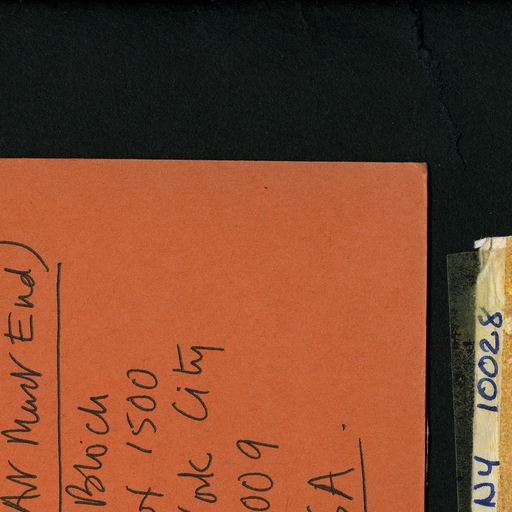 Art Must End)
Bloch
ox 1500
ork City
009
SA.
NY 10028